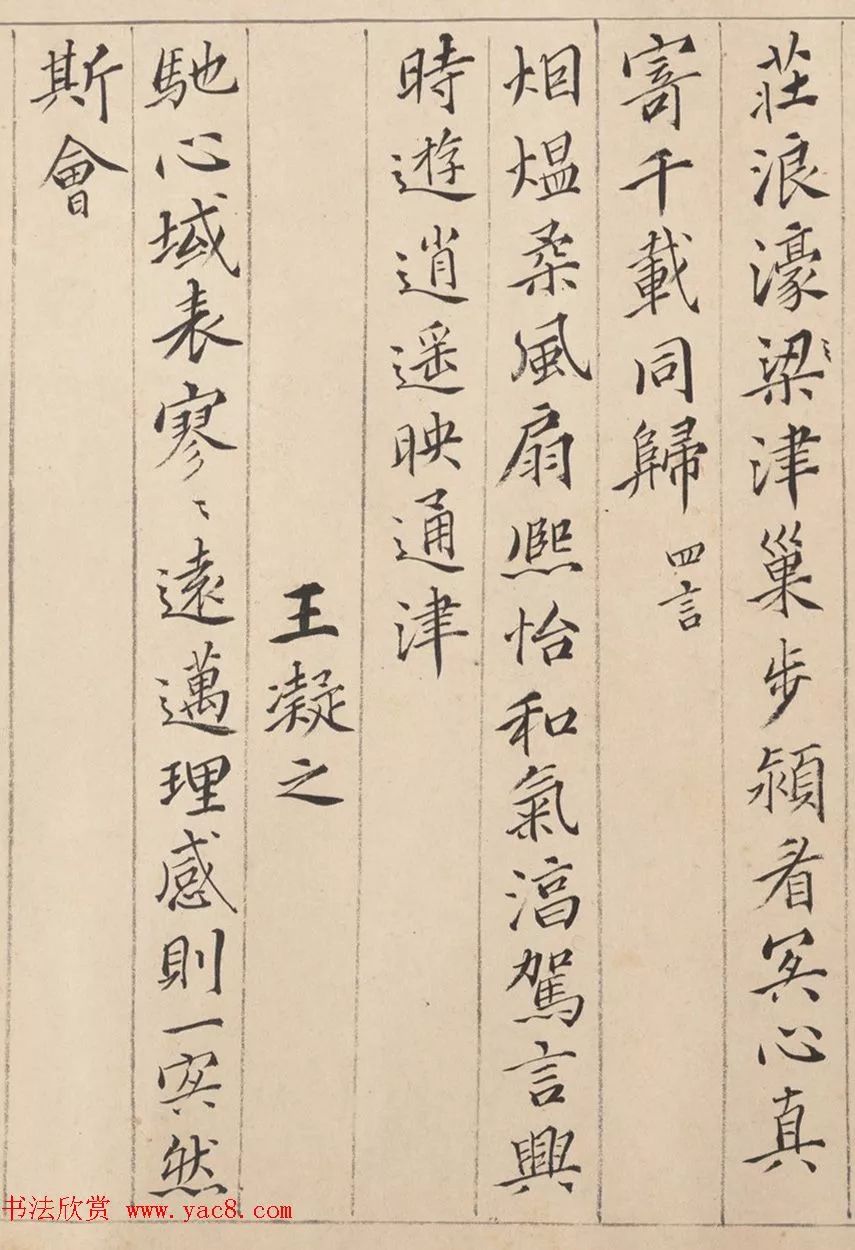 莊浪濠梁〻津巢步潁㫺冥心真
寄千載同歸 四言
烟熅柔風扇熈怡和氣淯駕言興
時遊逍遥映通津
王凝之
馳心域表寥〻遠邁理感則一冥然
斯會
书法欣赏 www.yac8.com